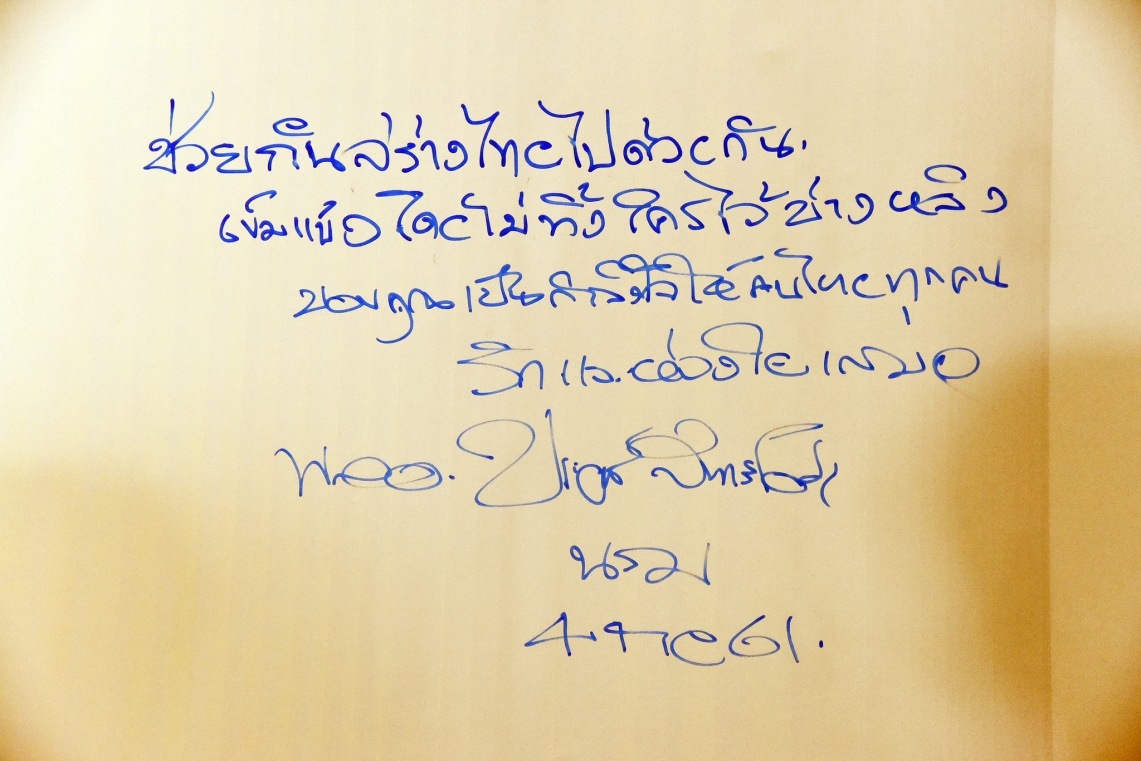 ช่วยกันสร้างไทยไปด้วยกัน.
เข้มแข็ง โดยไม่ทิ้งใครไว้ข้างหลัง
ขอบคุณ เป็นกำลังใจให้คนไทยทุกคน
รักและห่วงใยเสมอ
พลเอก. ประยุทธ์ จันทร์โอชา
นรม
4 กย 61.